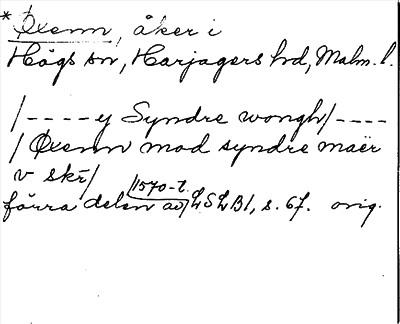 * Øxenn, åker i
Högs sn, Harjagers hd, Malm. l.
/----y Syndre wongh/----
/ Øxenn mod syndre maër
v skr̄/
förra delen av /1570-t. LSLB1, s. 67. orig.